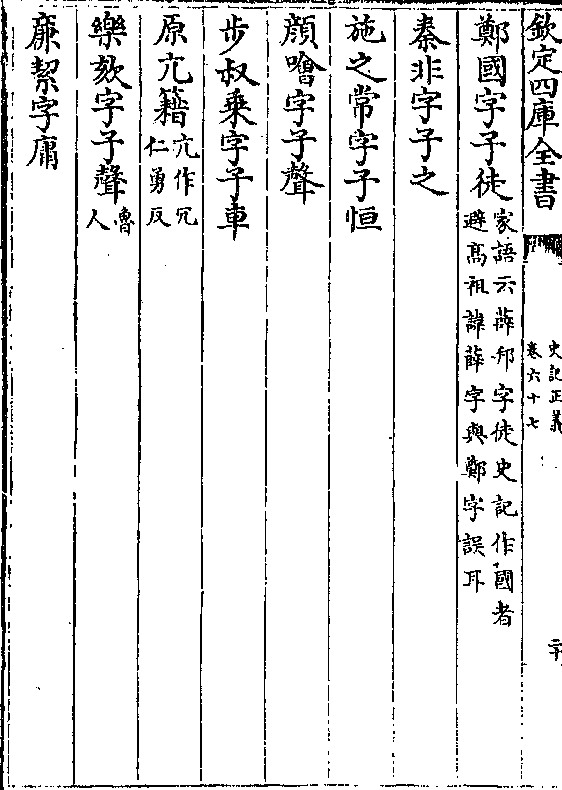 欽定四庫全書
史記正義
卷六十七
二十
鄭國字子徒家語云薛邦字徒史記作國者
避高祖諱薛字與鄭字誤耳
秦非字子之
施之常字子恒
顔噲字子聲
步叔乗字子車
原亢籍亢作冗
仁勇反
樂欬字子聲魯
人
亷絜字庸